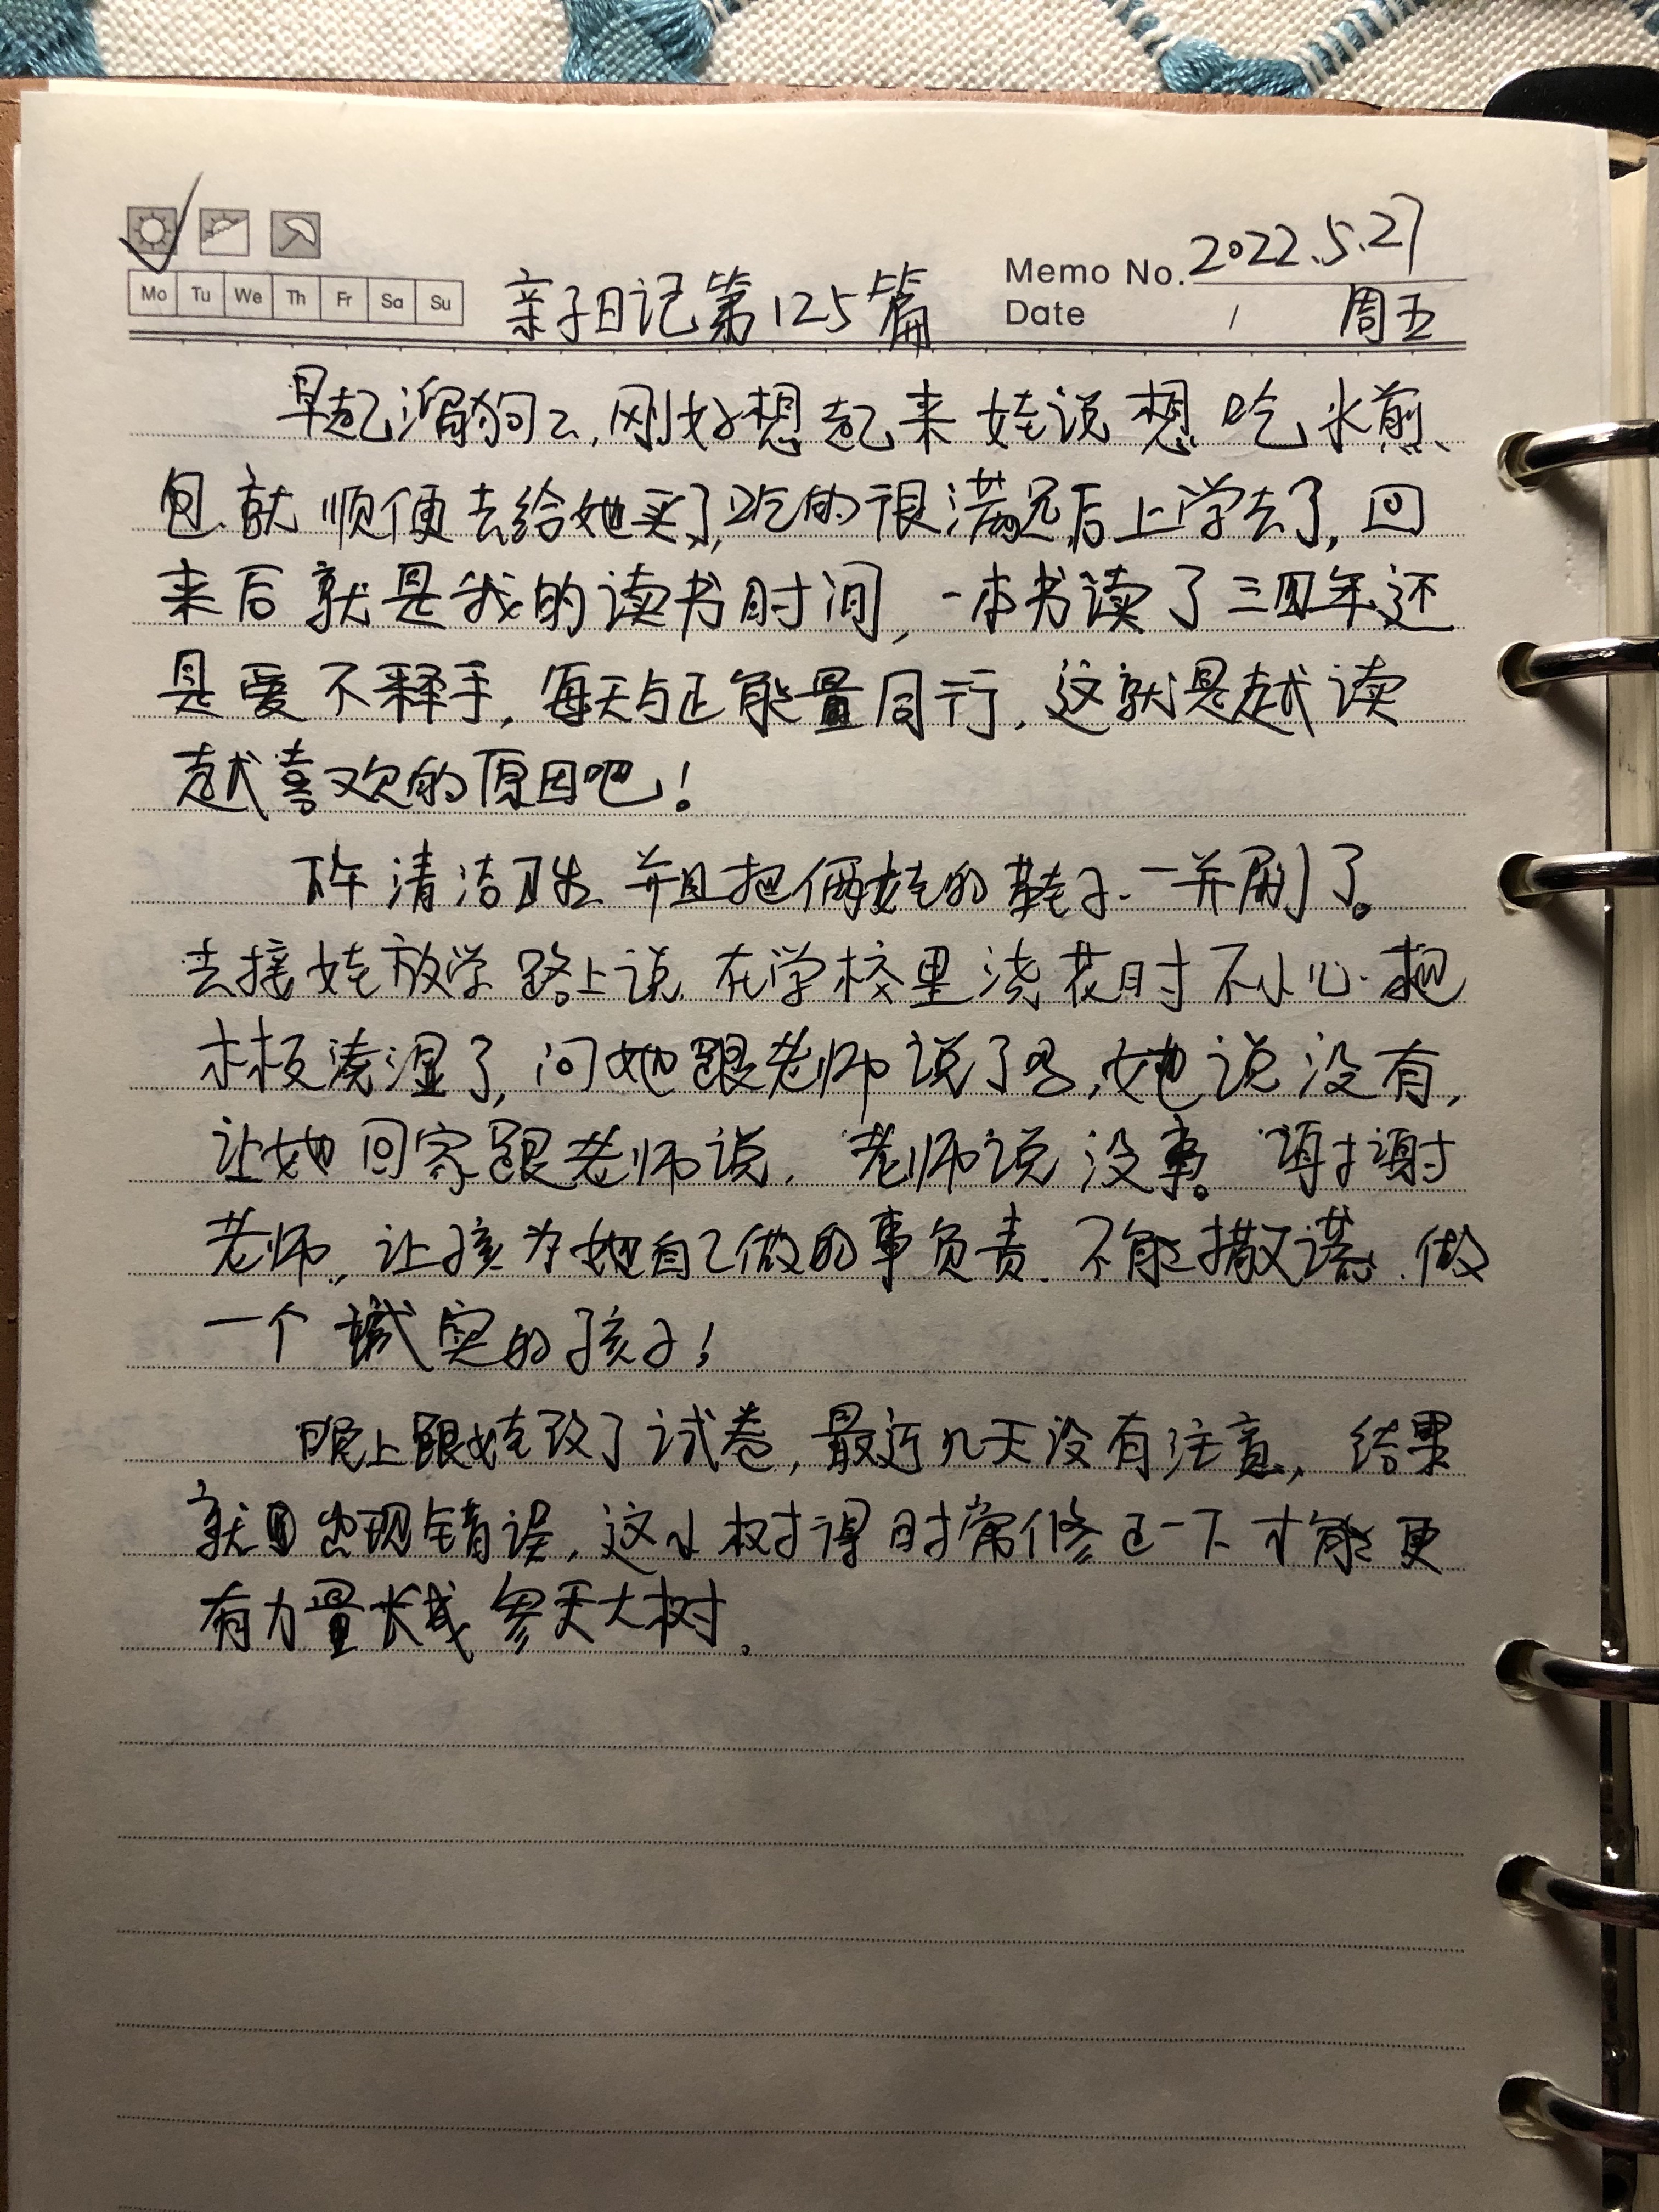 Memo No. 2022.5.27
Mo Tu We Th Fr Sa Su
亲子日记第125篇
Date / 周五
早起溜狗子,刚好想起来娃说想吃水煎
包.就顺便去给她买了,吃的很满足后上学去了,回
来后就是我的读书时间,一本书读了三四年还
是爱不释手,每天与正能量同行,这就是越读
越喜欢的原因吧!
下午清洁卫生并且把俩娃的鞋子一并刷了。
去接娃放学路上说在学校里浇花时不小心把
木板浇湿了,问她跟老师说了吗,她说没有,
让她回家跟老师说.老师说没事。谢谢
老师.让孩为她自己做的事负责.不能撒谎.做
一个诚实的孩子!
晚上跟娃改了试卷,最近几天没有注意,结果
就出现错误,这小树得时常修正一下才能更
有力量长成参天大树.